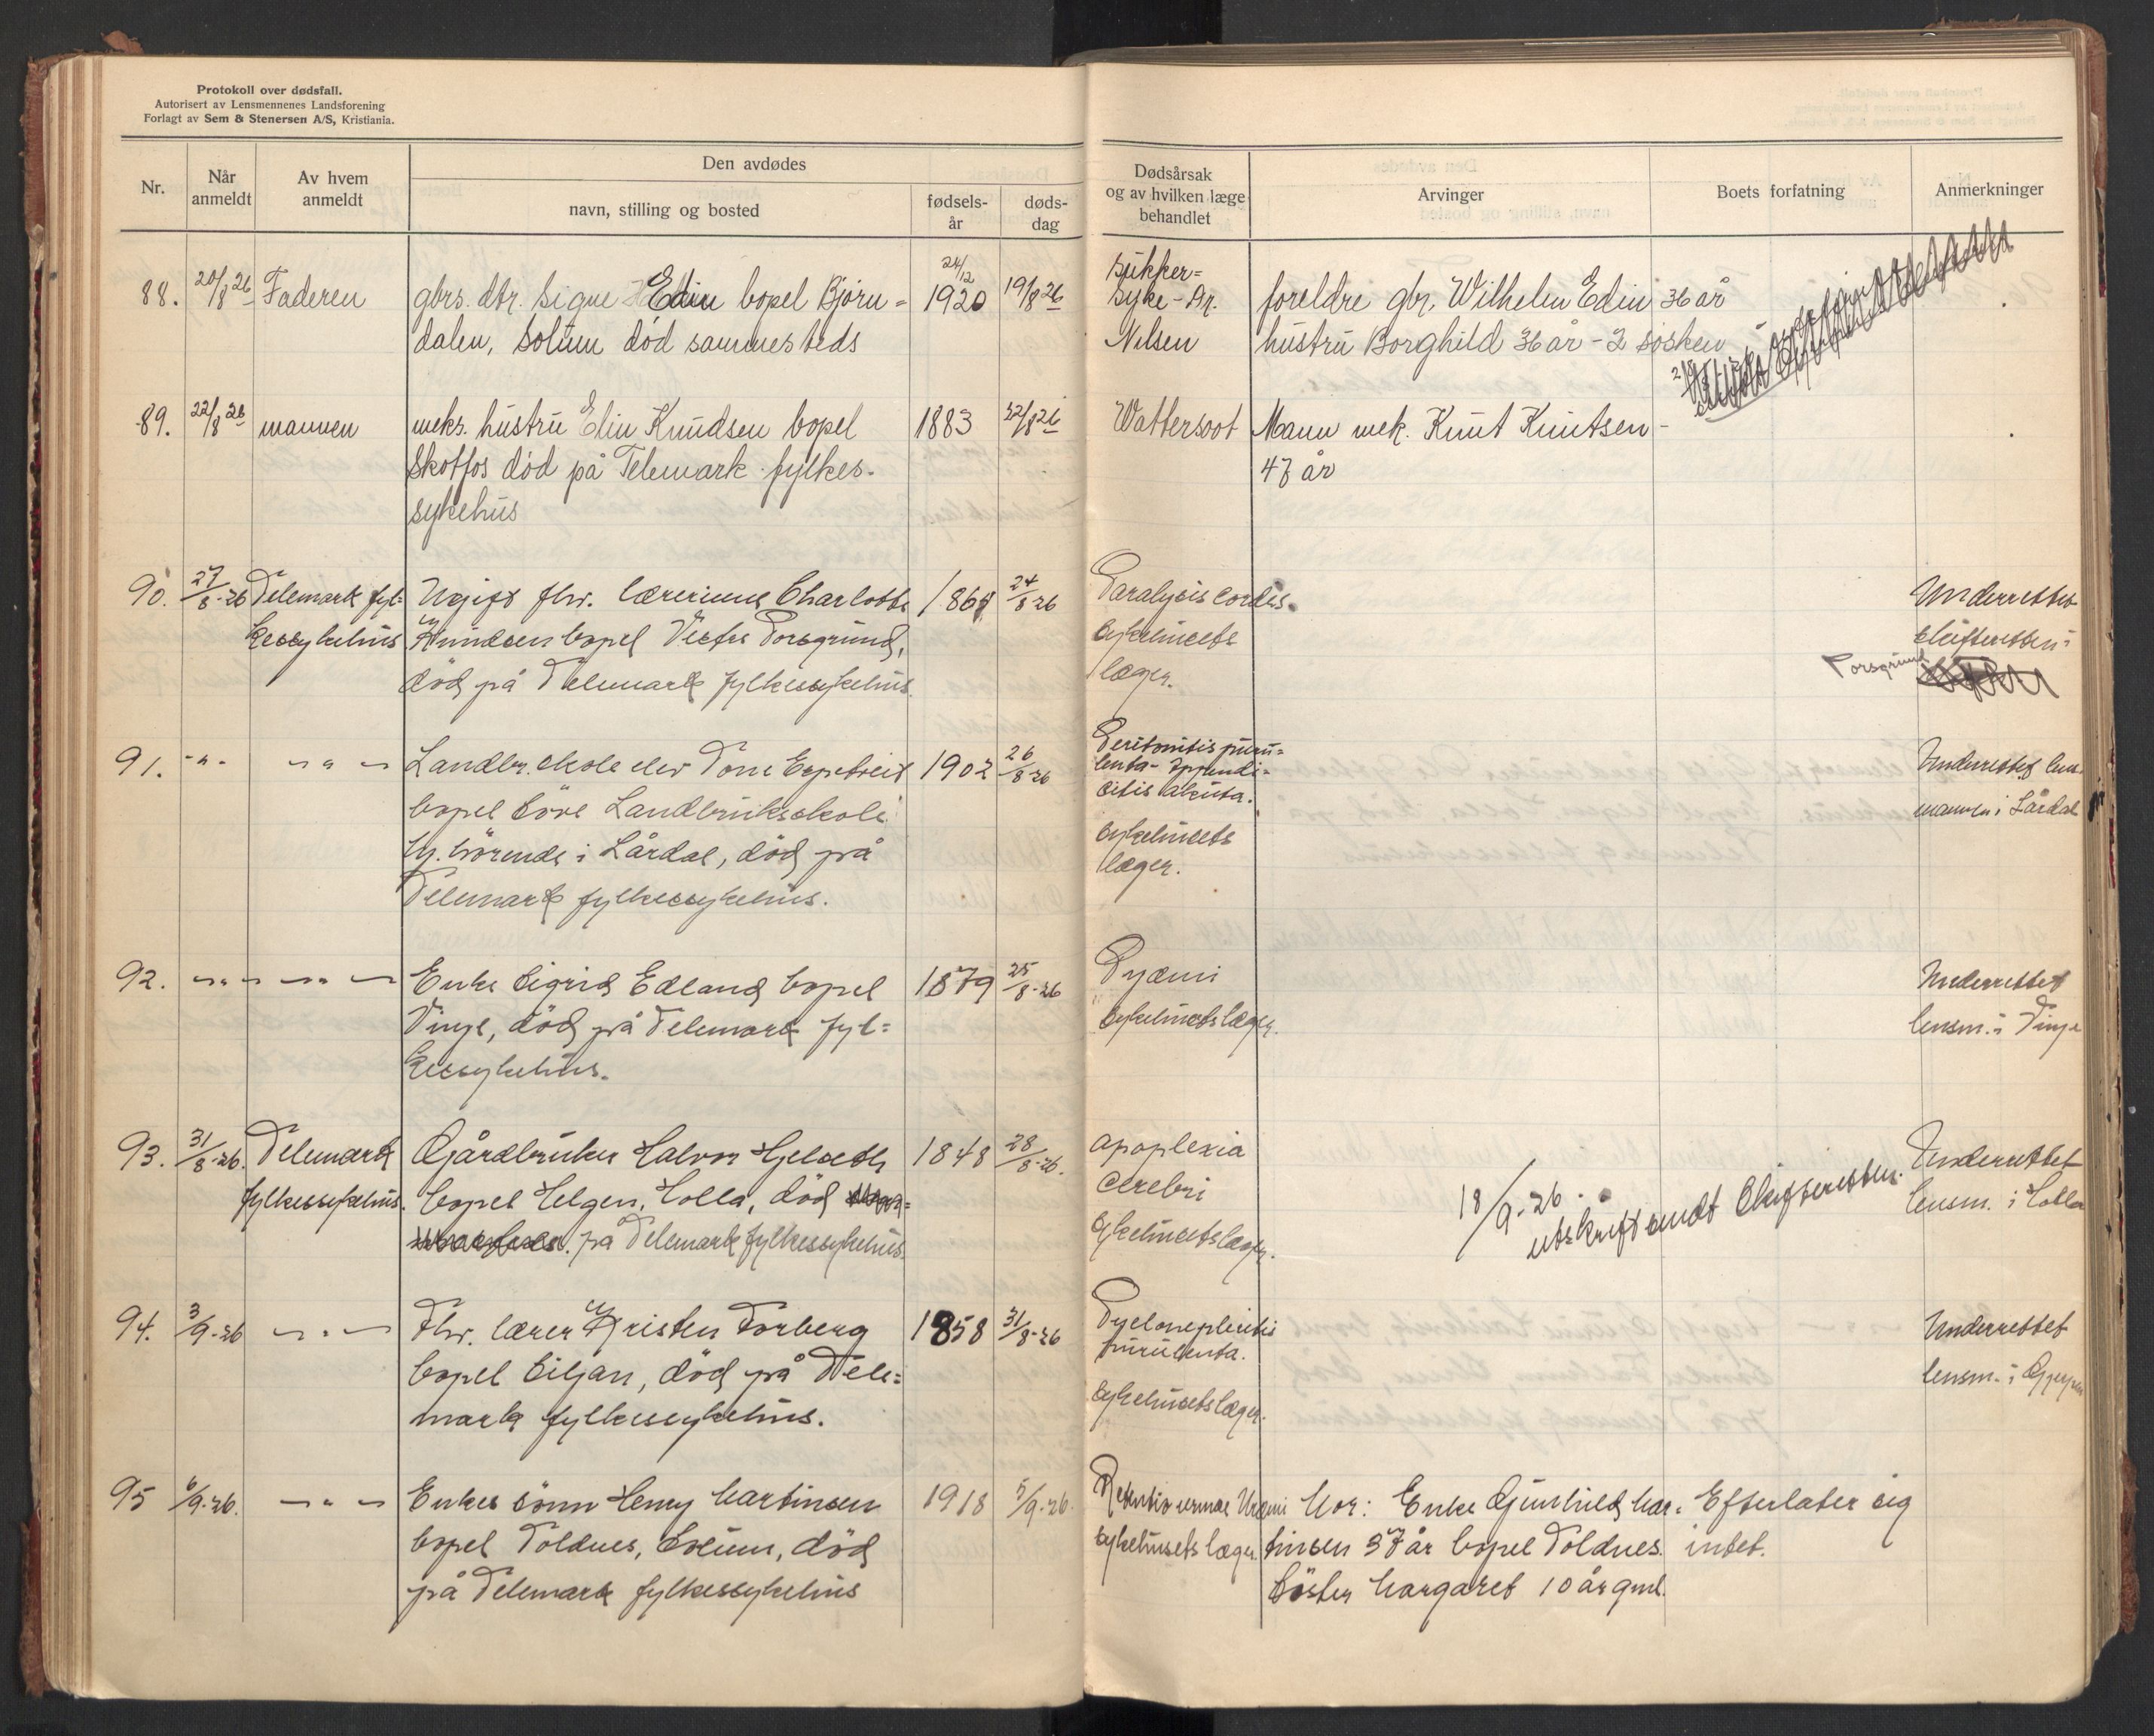 Protokoll over dødsfall.
Autorisert av Lensmennenes Landsforening
Forlagt av Sem & Stenersen A/S, Kristiania.
Nr.
Når anmeldt
Av hvem anmeldt
Den avdødes
navn, stilling og bosted
fødsels-år
døds-dag
Dødsårsak og av hvilken læge behandlet
Arvinger
Boets forfatning
Anmerkninger
88. 20/8 26 Faderen gbrs. dtr. Signe Edin bopel Bjørn-
dalen, Solum død sammesteds
24/12 1920 19/8 26
Sukker-
syke - Dr.
Nilsen
foreldre gbr. Wilhelm Edin 36 år
hustru Borghild 36 år - 2 søsken
89. 22/8 26 mannen meks. hustru Elin Knudsen bopel
Skotfos død på Telemark fylkes-
sykehus
1883 22/8 26
Wattersoot
Mann mek. Knut Knutsen -
47 år
90. 27/8-26 Telemark fyl-
kessykehus
Ugift fhv. lærerinne Charlotte
Amundsen bopel Vestre Porsgrund,
död på Telemark fylkessykehus.
24/8 26
Paralysis cordis.
Sykehusets
læger.
Underrettet
skifteretten i
Porsgrund
91. -"- -"- Landbr. skole elev Tone
bopel Söve Landbruksskole
hj. hörende i Lårdal, död på
Telemark fylkessykehus.
1902 26/8-26
Peritonitis puru-
lenta - Appendi-
citis akuta.
Sykehusets
læger.
Underrettet lens-
mannen i Lårdal
92. -"- -"- Enke Sigrid Edland bopel
Vinje, död på Telemark fyl-
kessykehus.
1879 25/8-26
Pyæmi
Sykehusets læger.
Underrettet
lensm. i Vinje
93. 31/8-26. Telemark
fylkessykehus.
Gårdbruker Halvor Hjelseth
bopel Helgen, Holla, död
på Telemark fylkessykehus.
1848 28/8-26.
Apoplexia
cerebri
Sykehusets læger.
18/9-26.
utskrift sendt Skifteretten.
Underrettet
lensm. i Holla
94. 3/9-26 -"- Fhv. lærer Kristen Torberg
bopel Siljan, död på Tele-
mark fylkessykehus.
1858 31/8-26
Pyelonephritis
purulenta.
Sykehusets læger.
Underrettet
lensm. i Gjerpen
95 6/9-26. -"- Enkes sönn Henry Martinsen
bopel Toldnes, Solum, död
på Telemark fylkessykehus
1918 5/9-26.
Retentio urinae Uræmi
Sykehusets læger.
Mor: Enke Gunhild Mar-
tinsen 37 år bopel Toldnes.
Söster Margaret 10 år gml.
Efterlater sig
intet.